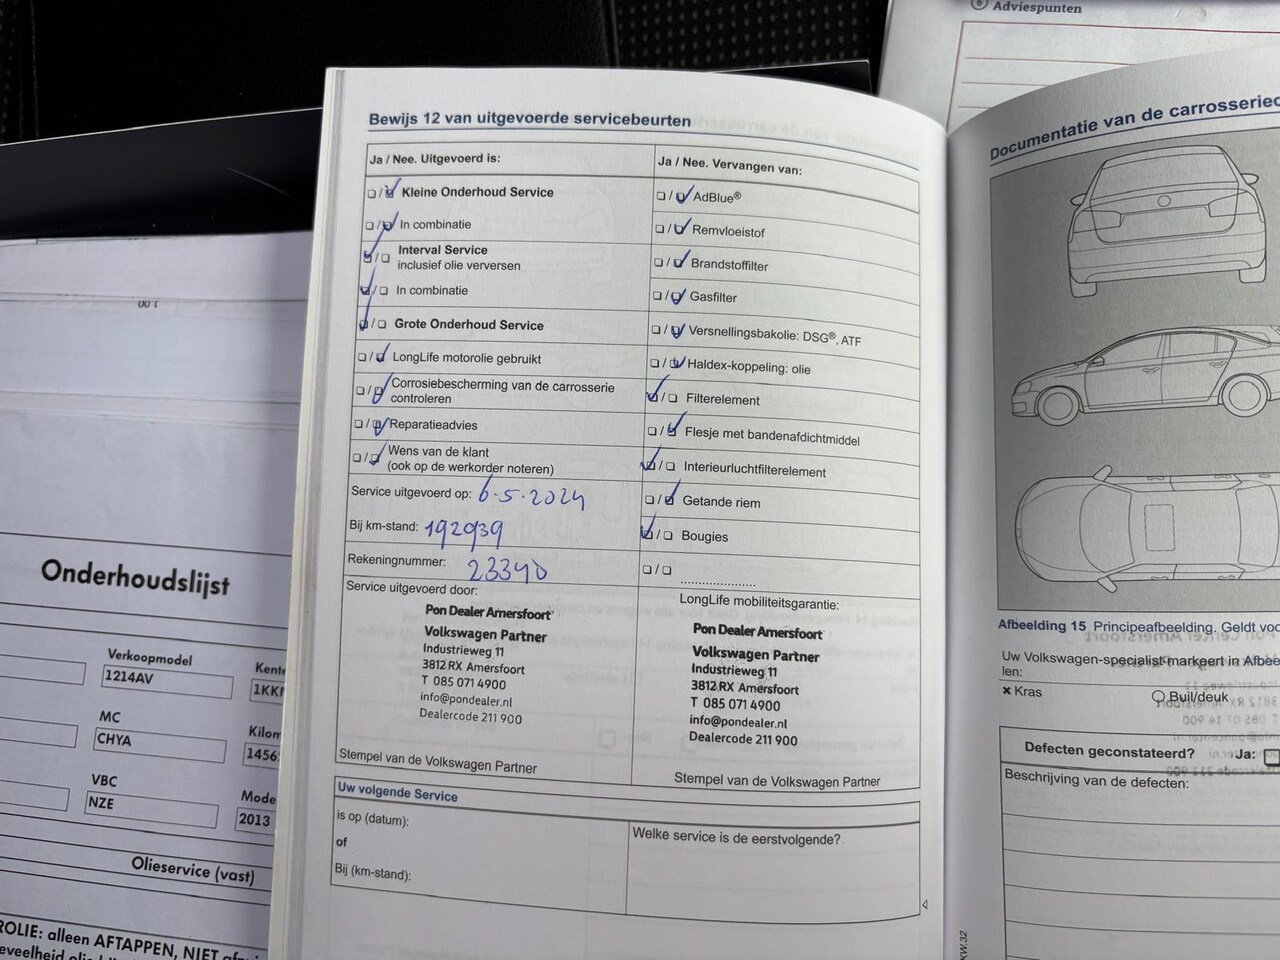 Adviespunten
Bewijs 12 van uitgevoerde servicebeurten
Ja / Nee. Uitgevoerd is:
Kleine Onderhoud Service
In combinatie
Interval Service
inclusief olie verversen
In combinatie
Grote Onderhoud Service
LongLife motorolie gebruikt
Corrosiebescherming van de carrosserie
controleren
Reparatieadvies
Wens van de klant
(ook op de werkorder noteren)
Service uitgevoerd op: 6-5-2024
Bij km-stand: 192939
Rekeningnummer: 23340
Service uitgevoerd door:
Pon Dealer Amersfoort
Volkswagen Partner
Industrieweg 11
3812 RX Amersfoort
T 085 071 4900
info@pondealer.nl
Dealercode 211 900
Stempel van de Volkswagen Partner
Ja / Nee. Vervangen van:
AdBlue®
Remvloeistof
Brandstoffilter
Gasfilter
Versnellingsbakolie: DSG®, ATF
Haldex-koppeling: olie
Filterelement
Flesje met bandenafdichtmiddel
Interieurluchtfilterelement
Getande riem
Bougies
LongLife mobiliteitsgarantie:
Pon Dealer Amersfoort
Volkswagen Partner
Industrieweg 11
3812 RX Amersfoort
T 085 071 4900
info@pondealer.nl
Dealercode 211 900
Stempel van de Volkswagen Partner
Uw volgende Service
is op (datum):
of
Bij (km-stand):
Welke service is de eerstvolgende?
Documentatie van de carrosserie
Afbeelding 15 Principeafbeelding. Geldt voo
Uw Volkswagen-specialist markeert in Afbee
len:
× Kras
Buil/deuk
Defecten geconstateerd? Ja:
Beschrijving van de defecten:
KW.32
Onderhoudslijst
Verkoopmodel
1214AV
Kente
MC
CHYA
Kilom
1456
VBC
NZE
Mode
2013
Olieservice (vast)
ROLIE: alleen AFTAPPEN, NIET